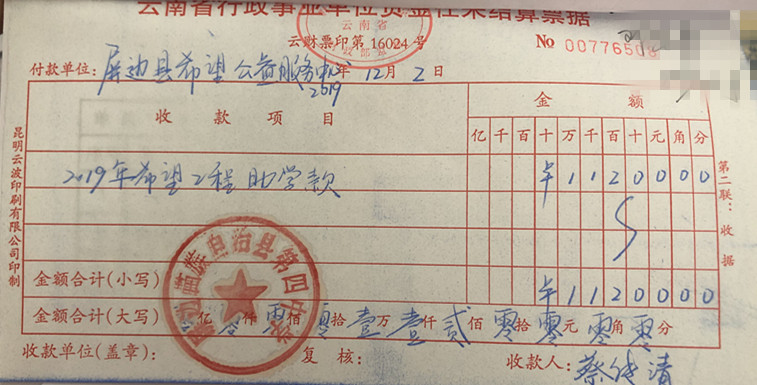 云南省行政事业单位资金往来结算票据
云南省
云财票印第 16024 号
№ 00776508
付款单位: 屏边县希望公益服务中心 2019 年 12 月 2 日
收款项目 金额
亿 千 百 十 万 千 百 十 元 角 分
2019年希望工程助学款 ¥1120000
金额合计(小写) ¥1120000
金额合计(大写) 亿 仟 零 佰 零 拾 壹 万 壹 仟 贰 佰 零 拾 零 元 零 角 零 分
收款单位(盖章): 复核: 收款人:
屏边苗族自治县第四中学
昆明云波印刷有限公司印制
第二联:收据